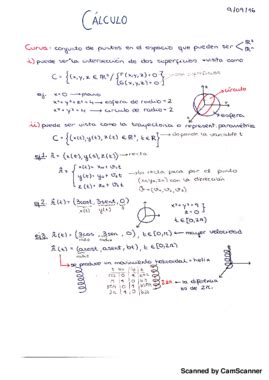 9/09/16
CÁLCULO
Curva = conjunto de puntos en el espacio que pueden ser ℝ²
ℝ³
i) puede ser la intersección de dos superficies visto como
C = {(x,y,z ∈ ℝ³ / F(x,y,z)=0
G(x,y,z)=0}
eg. x=0 → plano
x²+y²+z²=4 → esfera de radio=2
círculo
x²+y²=4 → círculo de radio=2
esfera
ii) puede ser visto como la trayectoria o represent. paramétrica
C = {(x(t), y(t), z(t)) ∈ ℝ³, t ∈ ℝ} → depende la variable t
eg1 r̄ = (x(t), y(t), z(t)) → recta
r̄ = { x(t) = x₀ + v₁t
y(t) = y₀ + v₂t
z(t) = z₀ + v₃t
la recta pasa por el punto
(x₀,y₀,z₀) con la dirección
v̄ = (v₁, v₂, v₃)
ej2. r̄(t) = (3cost, 3sent, 0)
x(t) y(t)
x²+y²=9
z=0
t ∈ [0,2π]
ej3 r̄(t) = (3cos, 3sen, 0), t ∈ [0,π] ← mayor velocidad
r̄(t) = (acost, asent, bt), t ∈ [0,2π]
se produce un movimiento vertical = hélice
2π ← la diferencia
es de 2π.
Scanned by CamScanner